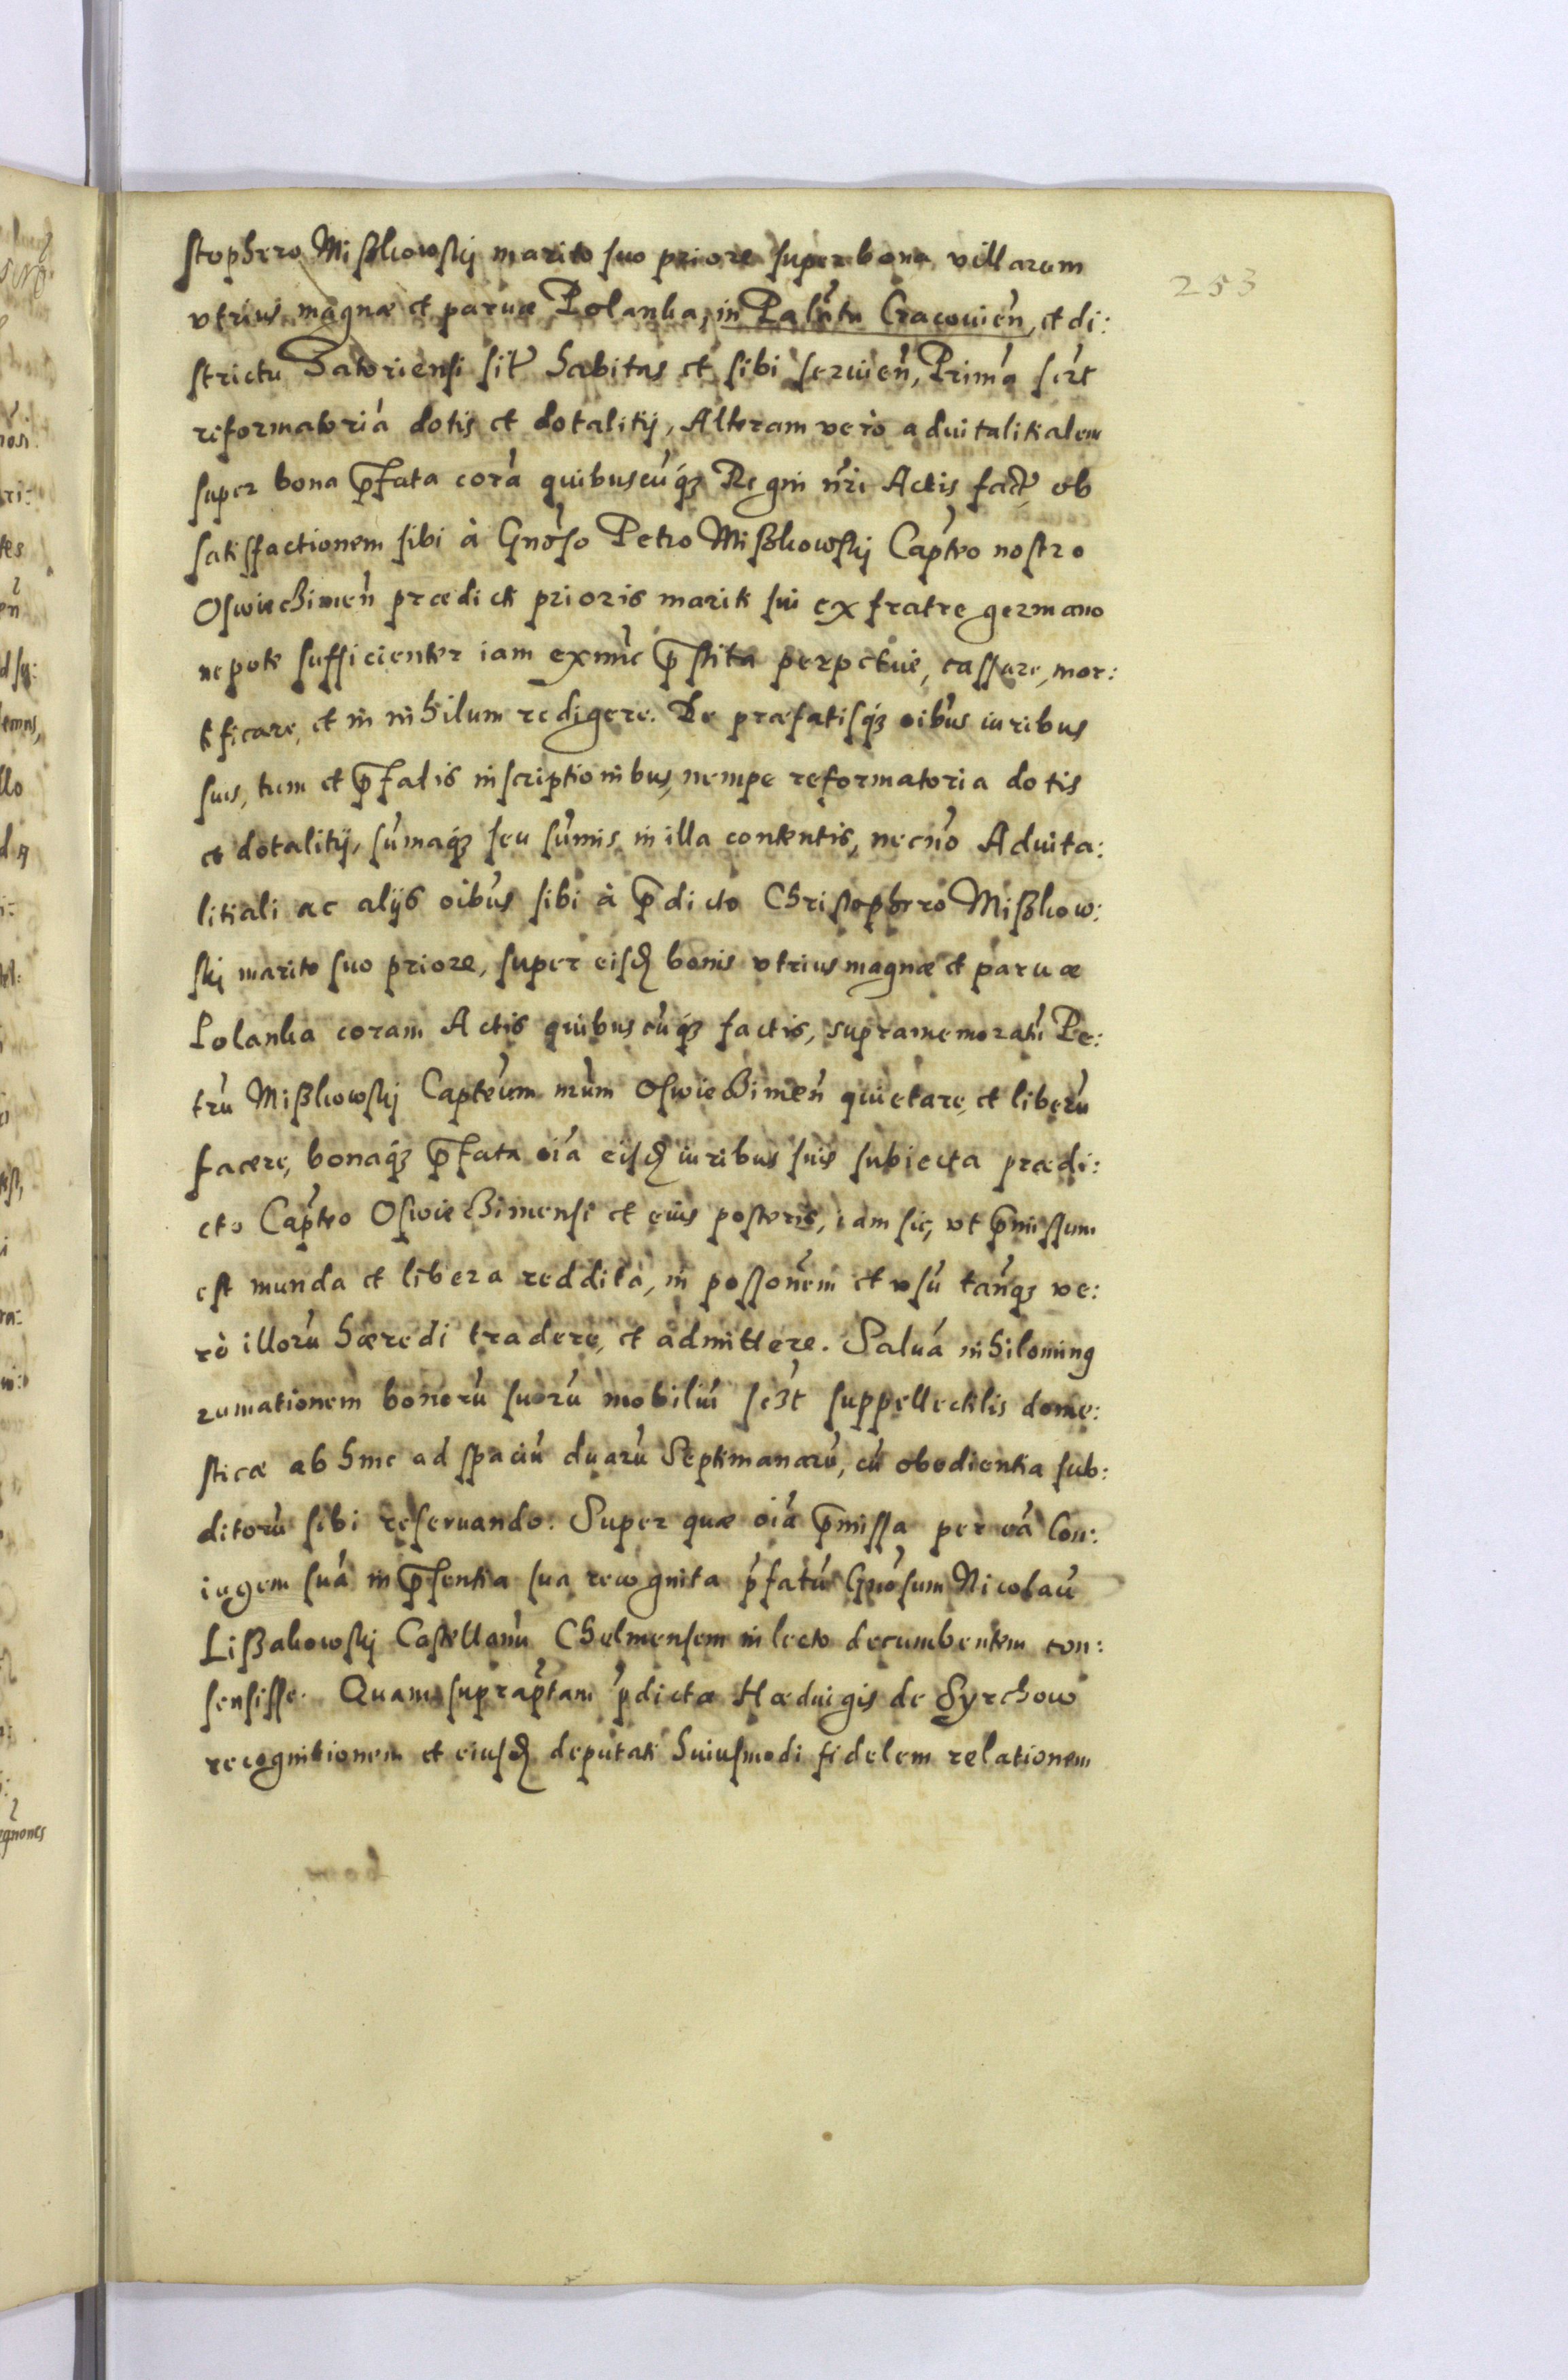 stophero Mißkowskÿ marito suo priore super bona villarum
253
vtrius magnæ et paruæ Polanka, in Palntu Cracouien, et di:
strictu Zatoriensi sit habitas et sibi seruien, Prima scrt
reformatoriá dotis et dotalitÿ, Alteram verò aduitalitialem
super bona pfata corá quibuscuqз Regni nri Actis fact, ob
satisfactionem sibi à Gnoso Petro Mißkowskj Capteo nostro
Oswiecimen prædicti prioris mariti sui ex fratre germano
nepote sufficienter iam exnuc pstita perpetuè, cassare, mor:
tificare, et in nihilum redigere. De præfatisqз oibus iuribus
suis, tum et pfatis inscriptionibus, nempe reformatoria dotis
et dotalitÿ, sumaqз seu sumis in illa contentis, necno Aduita:
litiali ac alÿs oibus sibi à pdicto Christophero Mißkow:
skj marito suo priore, super eisd bonis vtrius magnæ et paruæ
Polanka coram Actis quibuscuqз factis, supramemoratu Pe:
tru Mißkowskj Capteum nrum Oswiecimen quietare, et liberu
facere, bonaqз pfata oia eisd iuribus suis subiecta prædi:
cto Capteo Oswiecimensi et eius posteris, iam sic, vt pmissum
est munda et libera reddita, in possonem et vsu tanqз ve:
rò illoru hæredi tradere, et admittere. Saluá nihiloming
rumationem bonoru suoru mobiliu sczt suppellectilis dome:
sticæ ab hinc ad spaciu duaru Septimanaru, cu obedientia sub:
ditoru sibi reseruando. Super quæ oia pmissa per eá Con:
iugem suá in psentia sua recognita pfatu Gnosum Nicolau
Lißakowskj Castellanu Chelmensem in lecto decumbentem con:
sensisse. Quam supraptam pdictæ Hæduigis de Syrchow
recognitionem et eiusd deputati huiusmodi fidelem relationem